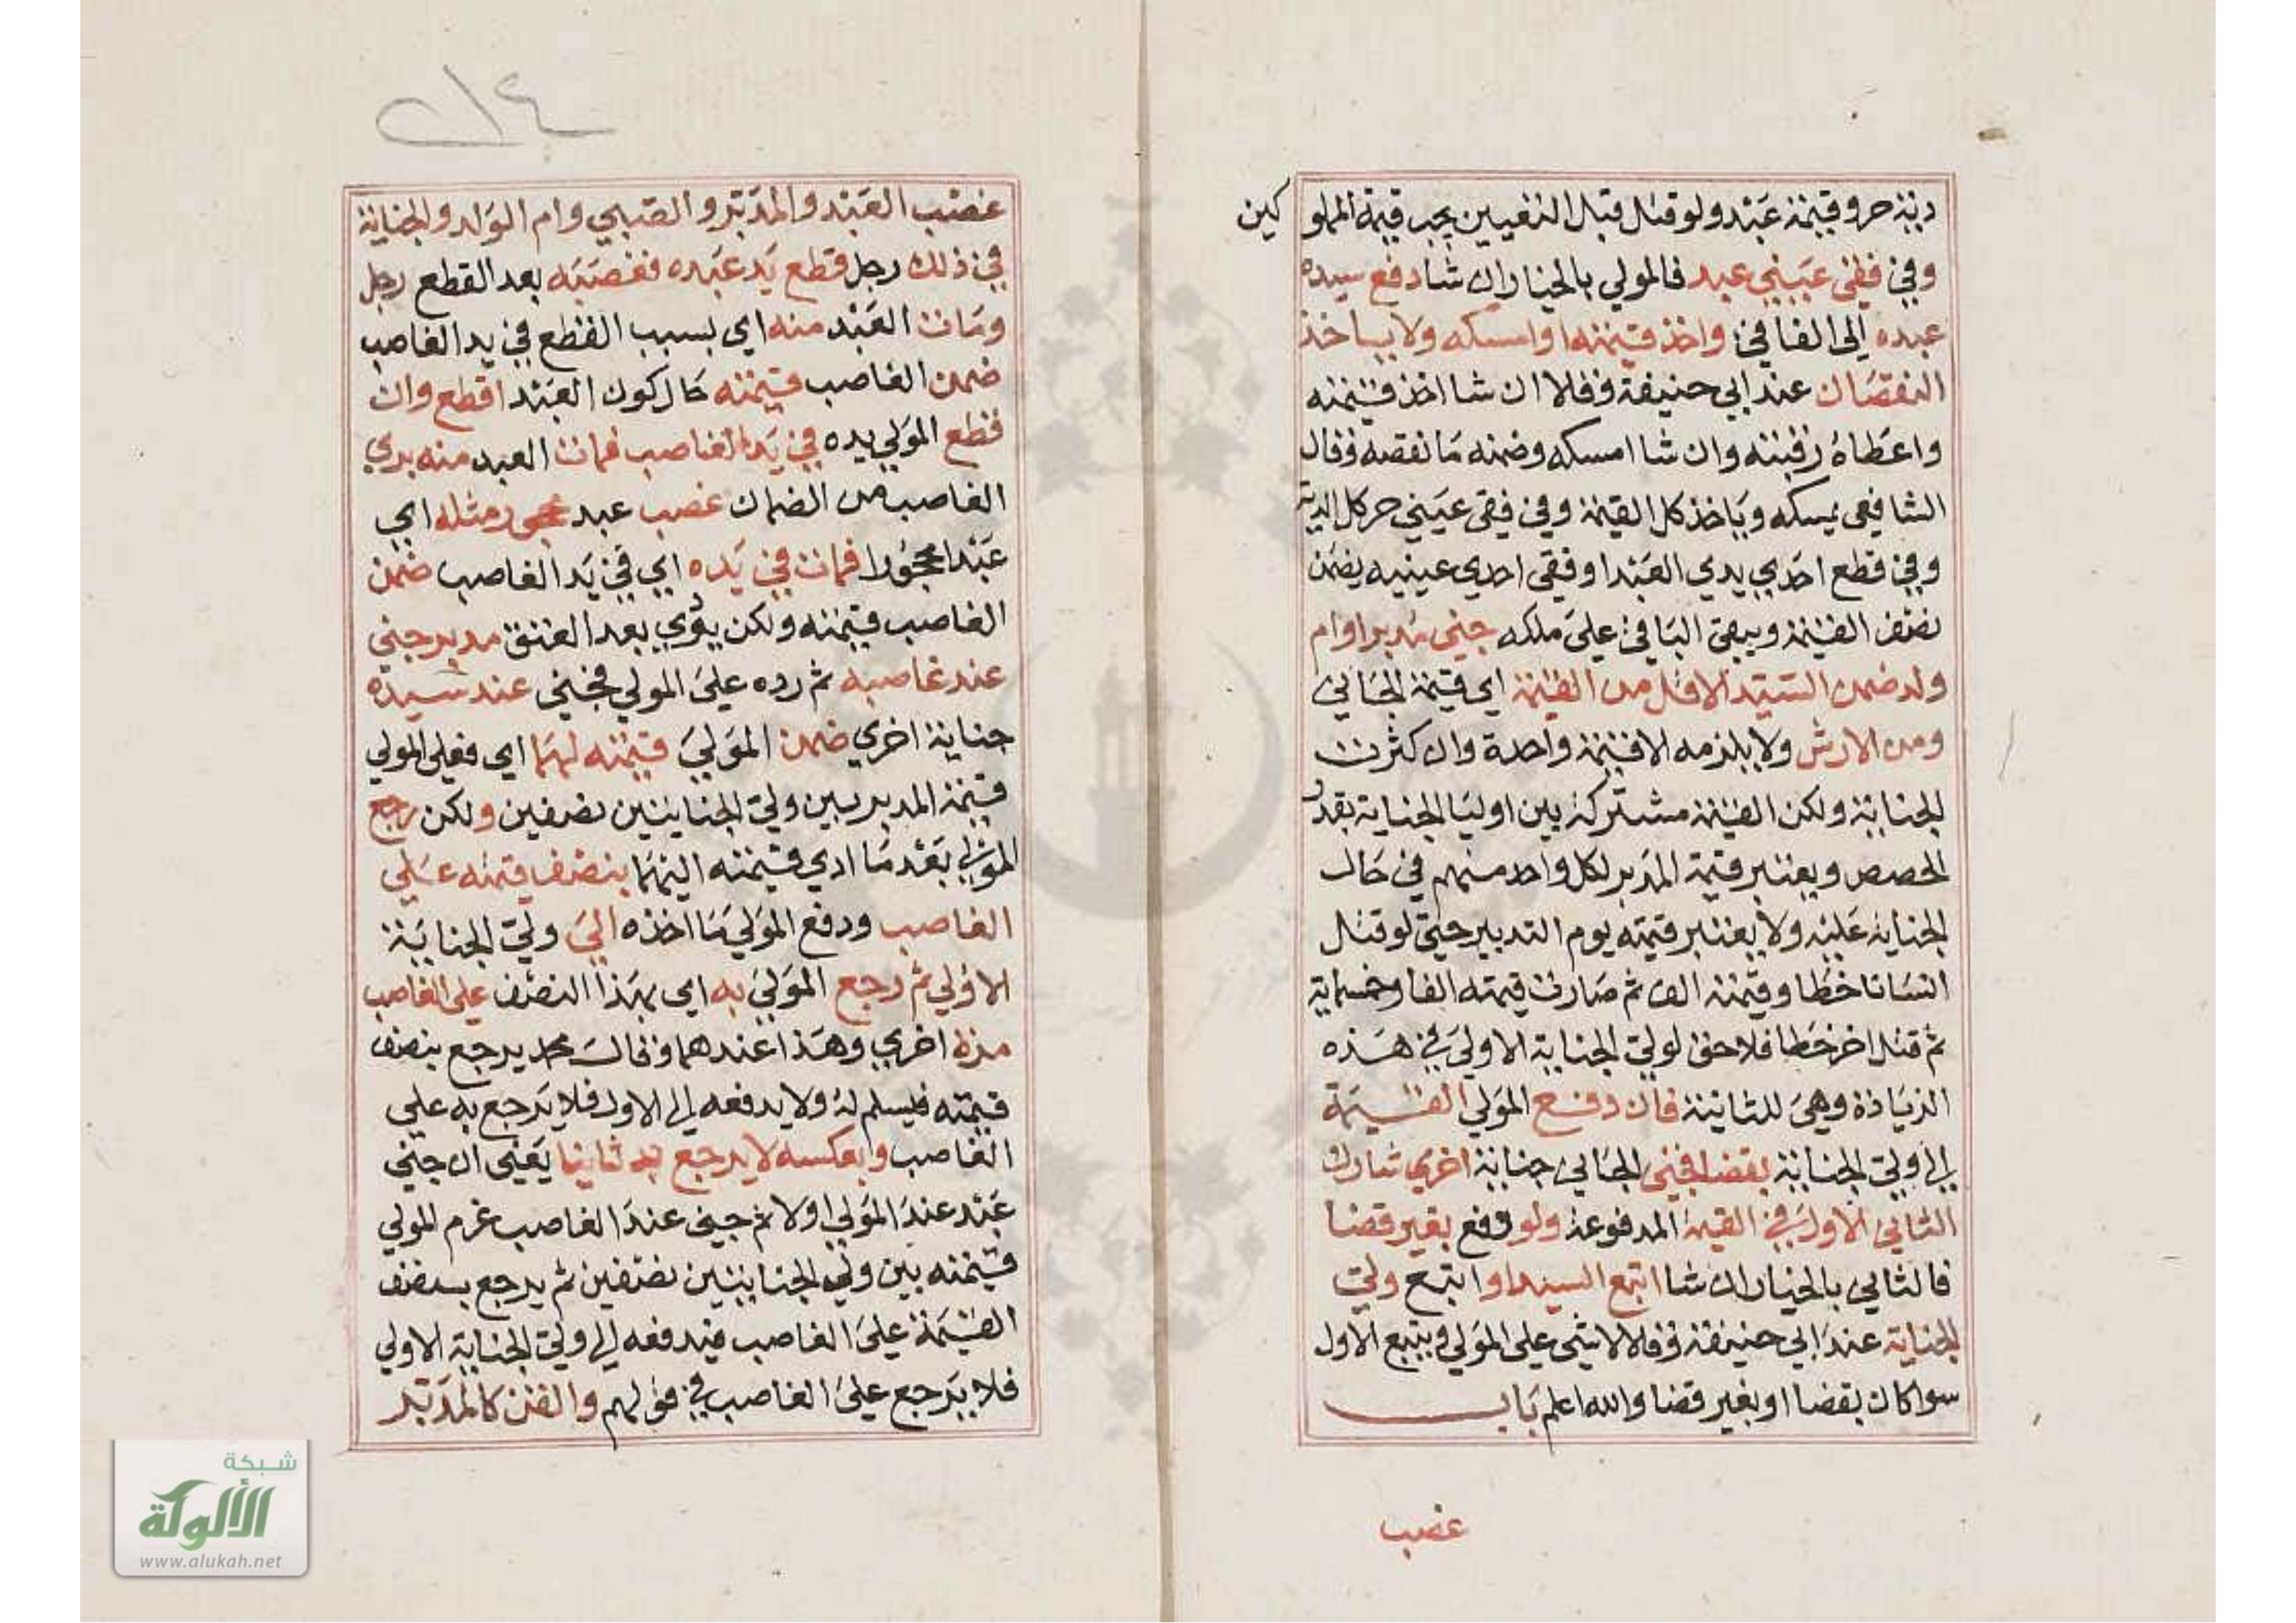 دية حر وقيمة عبد ولو قتل قبل التعيين يجب قيمة المملو كين
وفي فقئ عيني عبد فالمولي بالخيار ان شا دفع سيده
عبده الى الفاقئ واخذ قيمته او امسكه ولا ياخذ
النقصان عند ابي حنيفة وقالا ان شا اخذ قيمته
واعطاه رقبته وان شا امسكه وضمنه ما نقصه وقال
الشافعي يمسكه وياخذ كل القيمة وفي فقئ عيني حر كل الدية
وفي قطع احدي يدي العبد او فقئ احدي عينيه يضمن
نصف القيمة ويبقي الباقي علي ملكه جني مدبر او ام
ولد ضمن السيد الاقل من القيمة اي قيمة الجاني
ومن الارش ولا يلزمه الا قيمة واحدة وان كثرت
الجناية ولكن القيمة مشتركة بين اوليا الجناية بقدر
الحصص ويعتبر قيمة المدبر لكل واحد منهم في حال
الجناية عليه ولا يعتبر قيمته يوم التدبير حتي لو قتل
انسانا خطا وقيمته الف ثم صارت قيمته الفا وخمسماية
ثم قتل اخر خطا فلا حق لولي الجناية الاولي في هذه
الزيادة وهي للثانية فان دفع المولي القيمة
الي ولي الجناية بقضا فجني الجاني جناية اخري شارك
الثاني الاول في القيمة المدفوعة ولو دفع بغير قضا
فالثاني بالخيار ان شا اتبع السيد او اتبع ولي
الجناية عند ابي حنيفة وقالا لا شي علي المولي ويتبع الاول
سوا كان بقضا او بغير قضا والله اعلم باب
غصب
غصب العبد والمدبر والصبي وام الولد والجناية
في ذلك رجل قطع يد عبده فغصبه بعد القطع رجل
ومات العبد منه اي بسبب القطع في يد الغاصب
ضمن الغاصب قيمته حال كون العبد اقطع وان
قطع المولي يده في يد الغاصب فمات العبد منه بري
الغاصب من الضمان غصب عبد محجور مثله اي
عبدا محجورا فمات في يده اي في يد الغاصب ضمن
الغاصب قيمته ولكن يؤدي بعد العتق مدبر جني
عند غاصبه ثم رده علي المولي فجني عند سيده
جناية اخري ضمن المولي قيمته لهما اي فعلي المولي
قيمة المدبر بين ولي الجنايتين نصفين ولكن رجع
المولي بعد ما ادي قيمته اليهما بنصف قيمته علي
الغاصب ودفع المولي ما اخذه الي ولي الجناية
الاولي ثم رجع المولي به اي بهذا النصف علي الغاصب
مرة اخري وهذا عندهما وقال محمد يرجع بنصف
قيمته فيسلم له ولا يدفعه الي الاول فلا يرجع به علي
الغاصب وبعكسه لا يرجع به ثانيا يعني ان جني
عبد عند المولي اولا ثم جني عند الغاصب غرم المولي
قيمته بين ولي الجنايتين نصفين ثم يرجع بنصف
القيمة علي الغاصب فيدفعه الي ولي الجناية الاولي
فلا يرجع علي الغاصب في قولهم والقن كالمدبر
شبكة
الألوكة
www.alukah.net